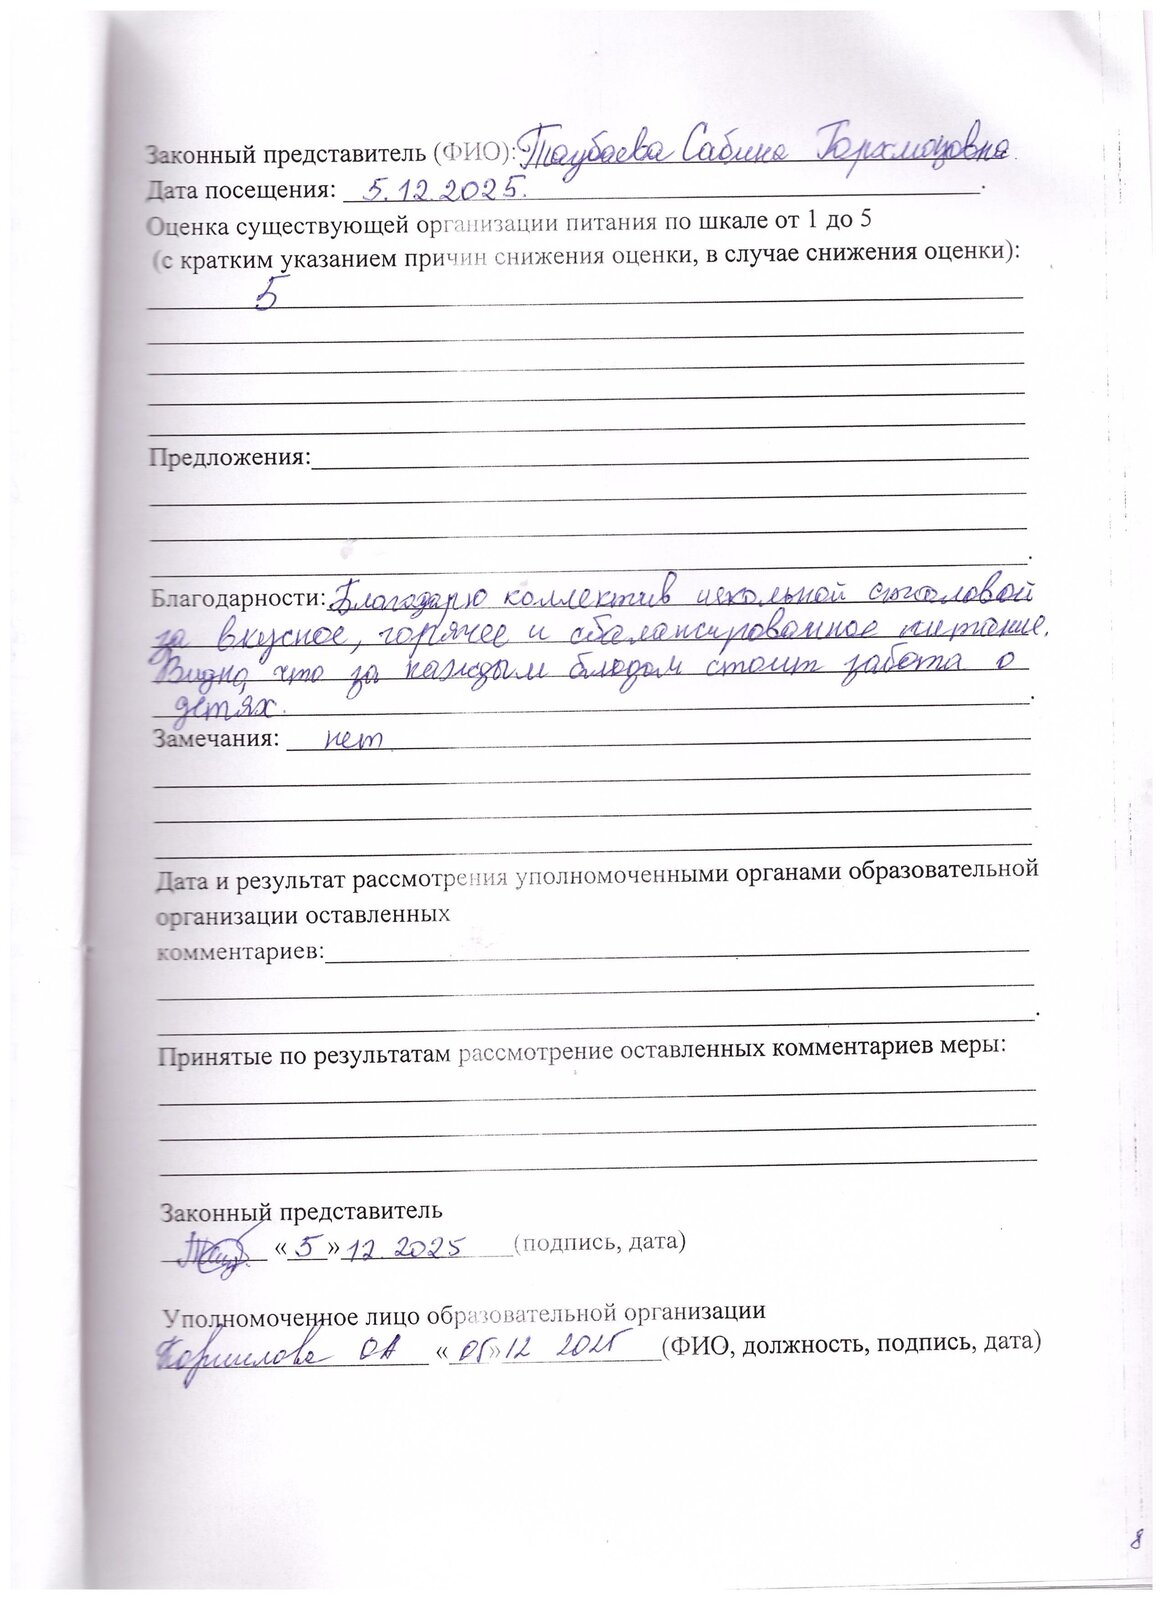 Законный представитель (ФИО): Таубаева Сабина
Дата посещения: 5.12.2025.
Оценка существующей организации питания по шкале от 1 до 5
(с кратким указанием причин снижения оценки, в случае снижения оценки):
5
Предложения:
Благодарности: Благодарю коллектив школьной столовой
за вкусное, горячее и сбалансированное питание.
Видно, что за каждым блюдом стоит забота о
детях.
Замечания: нет
Дата и результат рассмотрения уполномоченными органами образовательной
организации оставленных
комментариев:
Принятые по результатам рассмотрение оставленных комментариев меры:
Законный представитель
«5» 12. 2025 (подпись, дата)
Уполномоченное лицо образовательной организации
ОА «05» 12 2025 (ФИО, должность, подпись, дата)
8